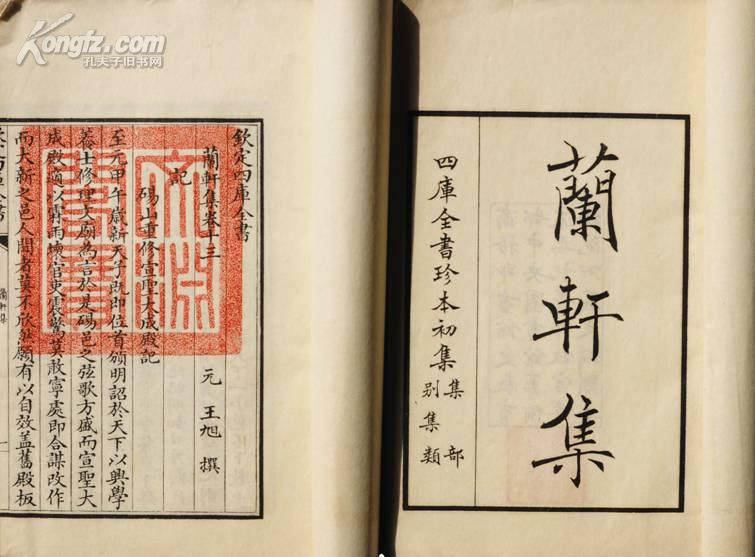 蘭軒集
四庫全書珍本初集 集部
別集類
欽定四庫全書
蘭軒集卷十三
元 王旭 撰
記
碭山重修宣聖大成殿記
至元甲午嵗新天子既即位首頒明詔於天下以興學
養士修理文廟為言於是碭邑之弦歌方盛而宣聖大
成殿適以雨官吏震驚莫敢寧處即合謀改作
而大新之邑人聞者莫不欣然願有以自效盖舊殿板
蘭軒集
Kongfz.com
孔夫子旧书网